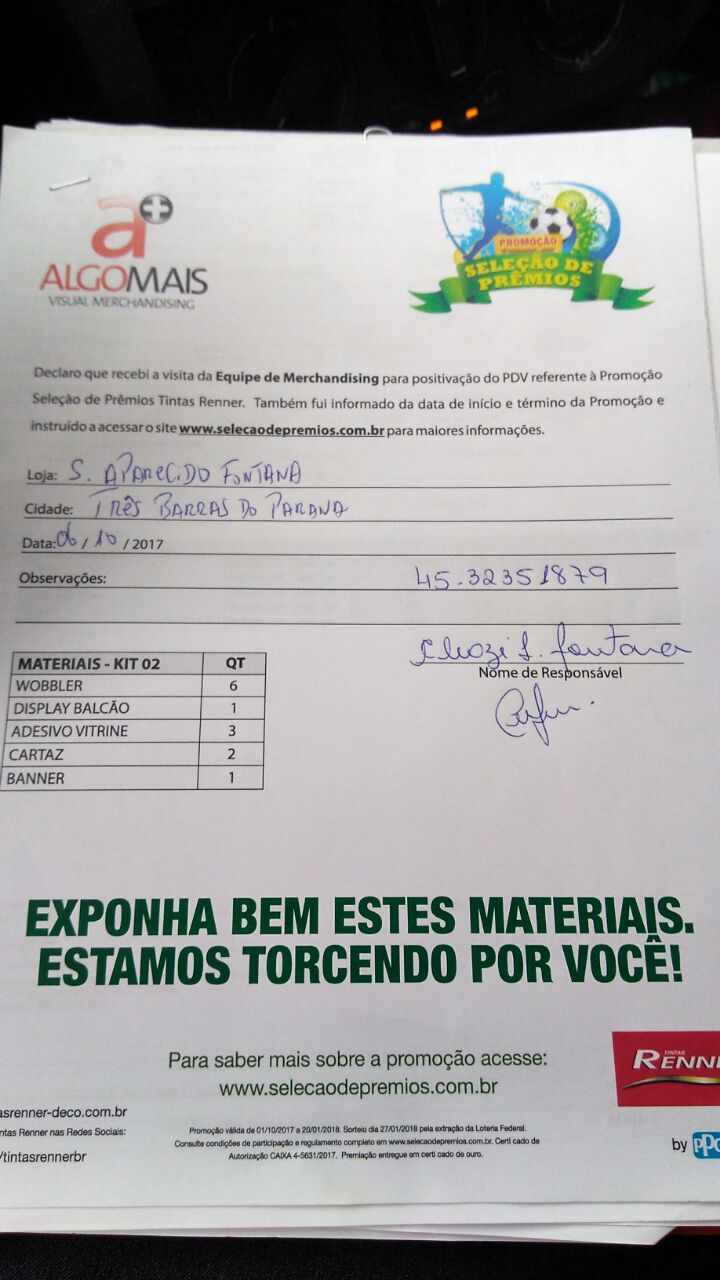 a+
ALGOMAIS
VISUAL MERCHANDISING
PROMOÇÃO
SELEÇÃO DE
PRÊMIOS
Declaro que recebi a visita da Equipe de Merchandising para positivação do PDV referente à Promoção
Seleção de Prêmios Tintas Renner. Também fui informado da data de início e término da Promoção e
instruído a acessar o site www.selecaodepremios.com.br para maiores informações.
Loja: S. APARECIDO FONTANA
Cidade: TRÊS BARRAS DO PARANA
Data: 06/10/2017
Observações: 45.32351879
S. Fontana
Nome de Responsável
MATERIAIS - KIT 02 QT
WOBBLER 6
DISPLAY BALCÃO 1
ADESIVO VITRINE 3
CARTAZ 2
BANNER 1
EXPONHA BEM ESTES MATERIAIS.
ESTAMOS TORCENDO POR VOCÊ!
Para saber mais sobre a promoção acesse:
www.selecaodepremios.com.br
TINTAS
RENN
asrenner-deco.com.br
ntas Renner nas Redes Sociais:
/tintasrennerbr
Promoção válida de 01/10/2017 a 20/01/2018. Sorteio dia 27/01/2018 pela extração da Loteria Federal.
Consulte condições de participação e regulamento completo em www.selecaodepremios.com.br. Certi cado de
Autorização CAIXA 4-5631/2017. Premiação entregue em certi cado de ouro.
by PPG